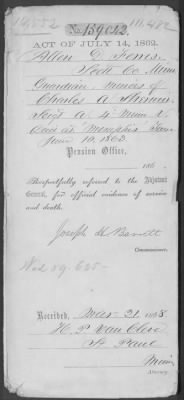 No. 159022
111,482
ACT OF JULY 14, 1862.
Allen D.
Scott Co Minn
Guardian, minors of
Charles A
A. 4" Minn V.
Died at Memphis Ten
June 10, 1863
Pension Office,
186
Respectfully referred to the Adjutant
General, for official evidence of service
and death.
Joseph H Barrett
Commissioner.
Wid 59.625
Received, Mar 21 1868
H. P. Van Cleve
St Paul
Minn
Attorney